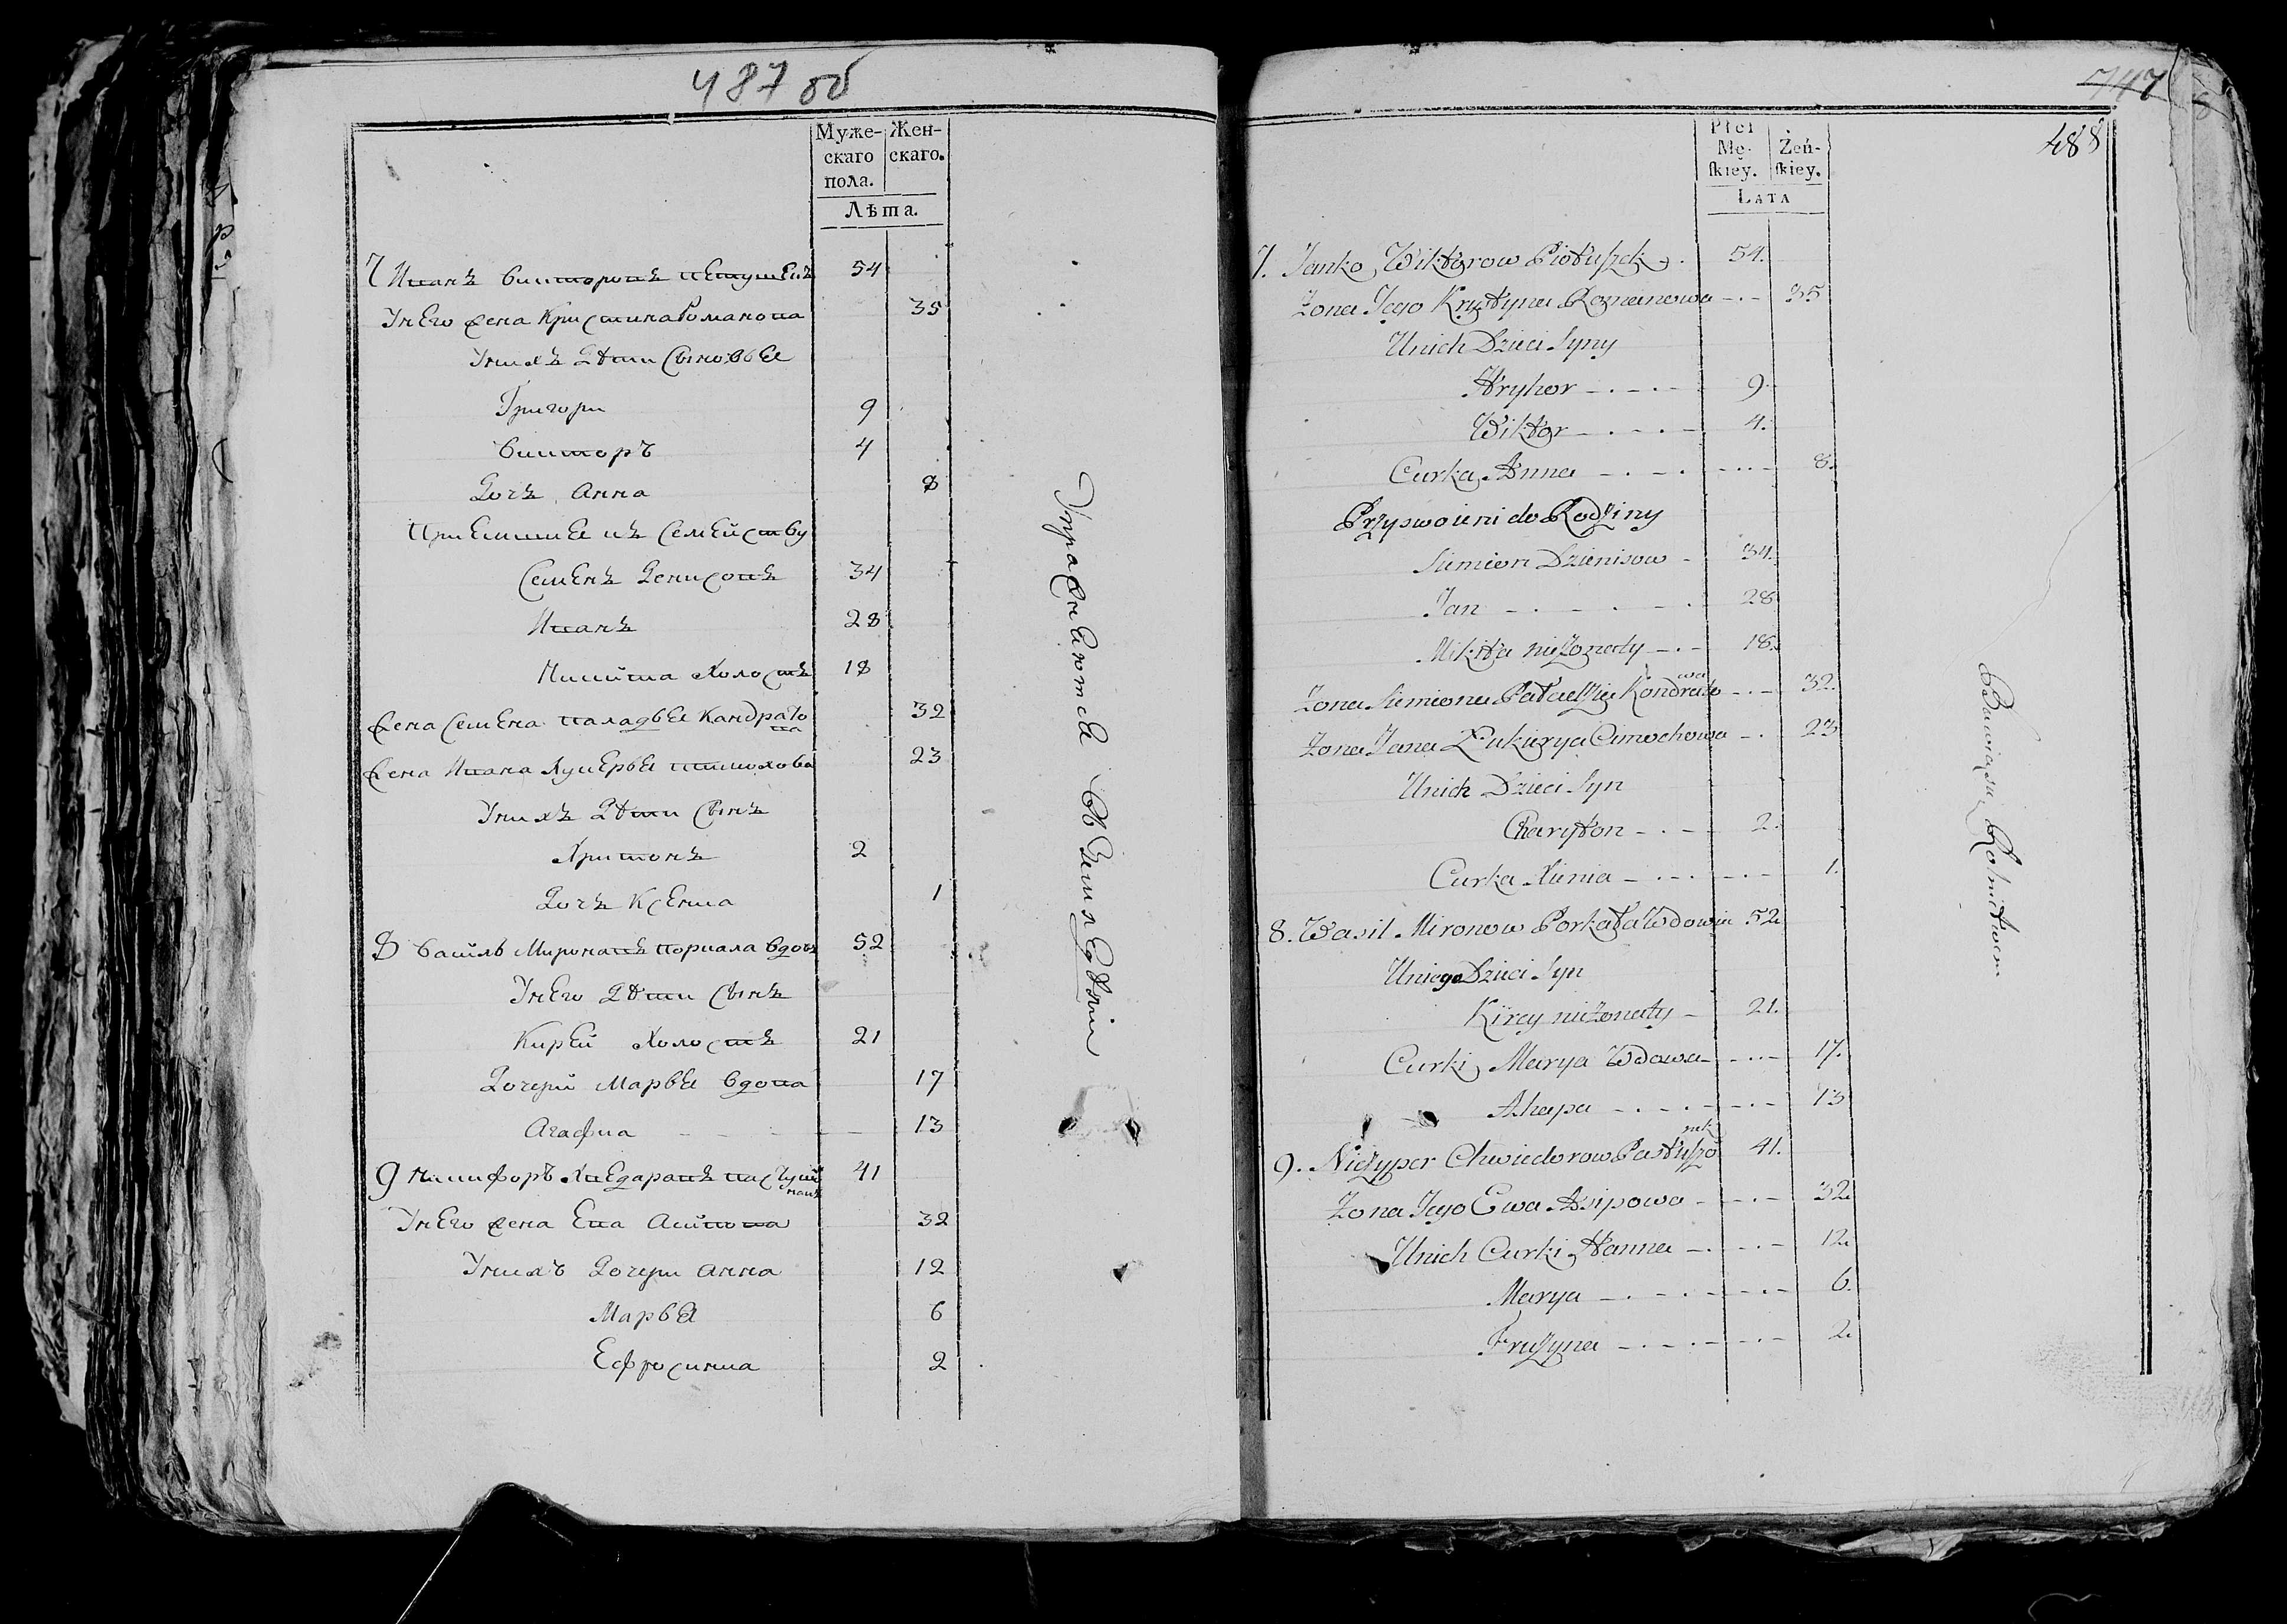 487 об
Муже-
скаго
пола.
Жен-
скаго.
Лѣта.
7 Иванъ Викторовъ Петушекъ 54
У него жена Кристина Романова 35
У нихъ дѣти сыновья
Григори 9
Викторъ 4
Дочъ Анна 8
Приемшие къ семейству
Семенъ Денисовъ 34
Иванъ 28
Микита холостъ 18
Жена Семена Паладья Кандрато
ва 32
Жена Ивана Лукерья Тимохова 23
У нихъ дѣти сынъ
Хритонъ 2
Дочъ Ксения 1
8 Василь Миронавъ Поркала вдовъ 52
У него дѣти сынъ
Кирей холостъ 21
Дочери Марья вдова 17
Агафиа 13
9 Никифоръ Хведаравъ Пастуш 41
У него жена Ева Асипова 32
У нихъ дочери Анна 12
Марья 6
Ефросиниа 2
Упражняютея въ Земледѣлiи
747
488
Płci
Mę-
ſkiey.
Żeń-
ſkiey.
Lata
7. Janko Wiktorow Piotuszek 54.
Żona Jego Krystyna Romanowa 35
U nich Dzieci Syny
Hryhor 9.
Wiktor 4.
Curka Anna 8.
Przyswoieni do Rodziny
Siemion Dzienisow 34.
Jan 28
Mikita nieżonaty 18.
Żona Siemiona Pałaszka Kondrato
wa 32.
Żona Jana Łukierya Cimochowa 23
U nich Dzieci Syn
Charyton 2.
Curka Xienia 1.
8. Wasil Mironow Porkała Wdowiec 52
U niego Dzieci Syn
Kirey nieżonaty 21.
Curki Marya Wdowa 17.
Ahapa 13
9. Niczyper Chwiedorow Pastuszo
nek 41.
Żona Jego Ewa Asipowa 32.
U nich Curki Hanna 12.
Marya 6.
Fruzyna 2.
Bawią się Rolnictwem